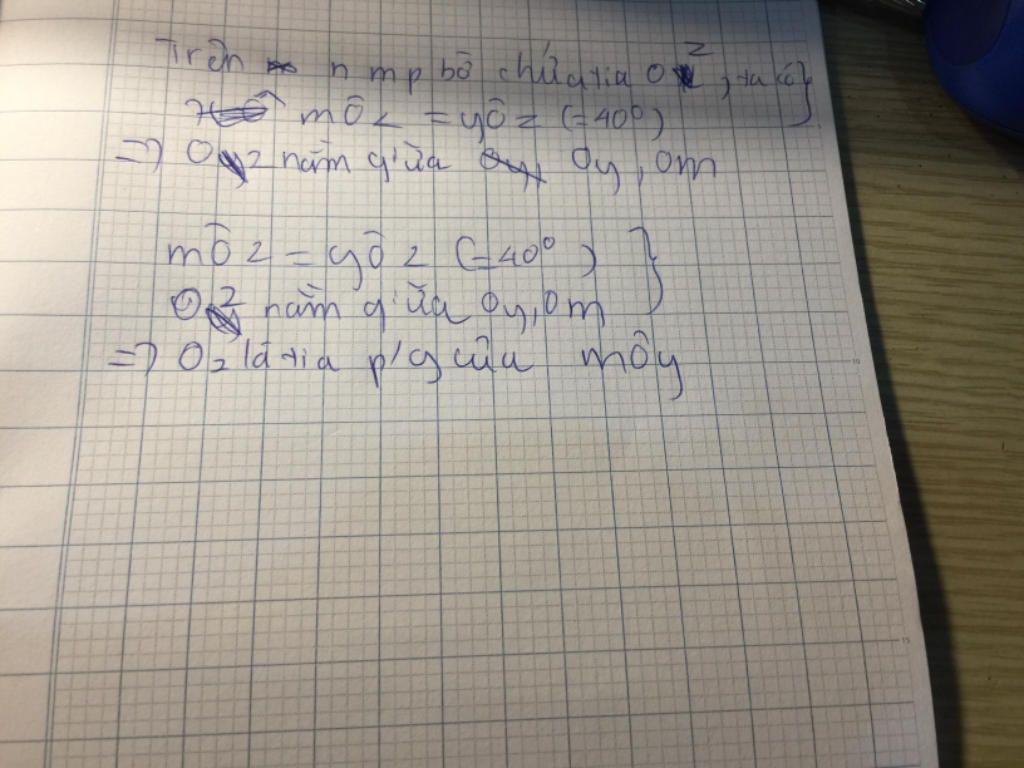 Trên n mp bờ chứa tia Oz, ta có}
mÔz = yÔz (=40°)
=> Oz nằm giữa Oy, Om
mÔz = yÔz (=40°) }
Oz nằm giữa Oy, Om
=> Oz là tia p/g của mÔy
10
15